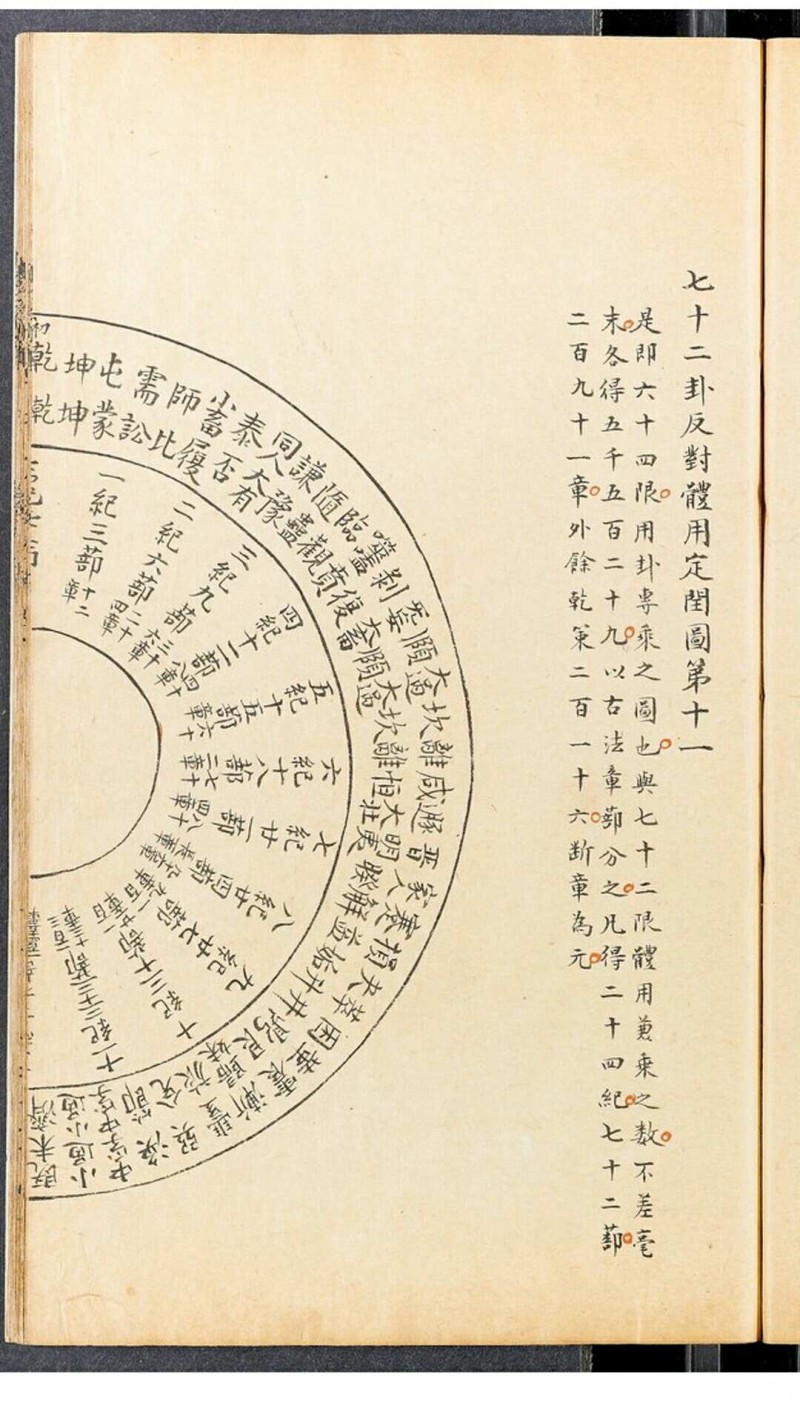 七十二卦反對體用定閏圖第十一
是即六十四限用卦專乘之圖也與七十二限體用兼乘之数不差毫
末各得五千五百二十九以古法章蔀分之凡得二十四紀七十二蔀
二百九十一章外餘乾策二百一十六断章為元
初
乾 坤 屯 需 師 小畜 泰 同人 謙 隨 臨 噬嗑 剥 无妄 頤 大過 坎 離 咸 遯 晋 家人 蹇 損 夬 萃 困 革 震 漸 豐 巽 渙 中孚 小過 既
乾 坤 蒙 訟 比 履 否 大有 豫 蠱 觀 賁 復 大畜 頤 大過 坎 離 恒 大壯 明夷 睽 解 益 姤 升 井 鼎 艮 歸妹 旅 兌 節 中孚 小過 未濟
一紀三蔀 十二章
二紀六蔀 二十四章
三紀九蔀 三十六章
四紀十二蔀 四十八章
五紀十五蔀 六十章
六紀十八蔀 七十二章
七紀廿一蔀 八十四章
八紀廿四蔀
九紀廿七蔀
十紀三十蔀
十一紀三十三蔀